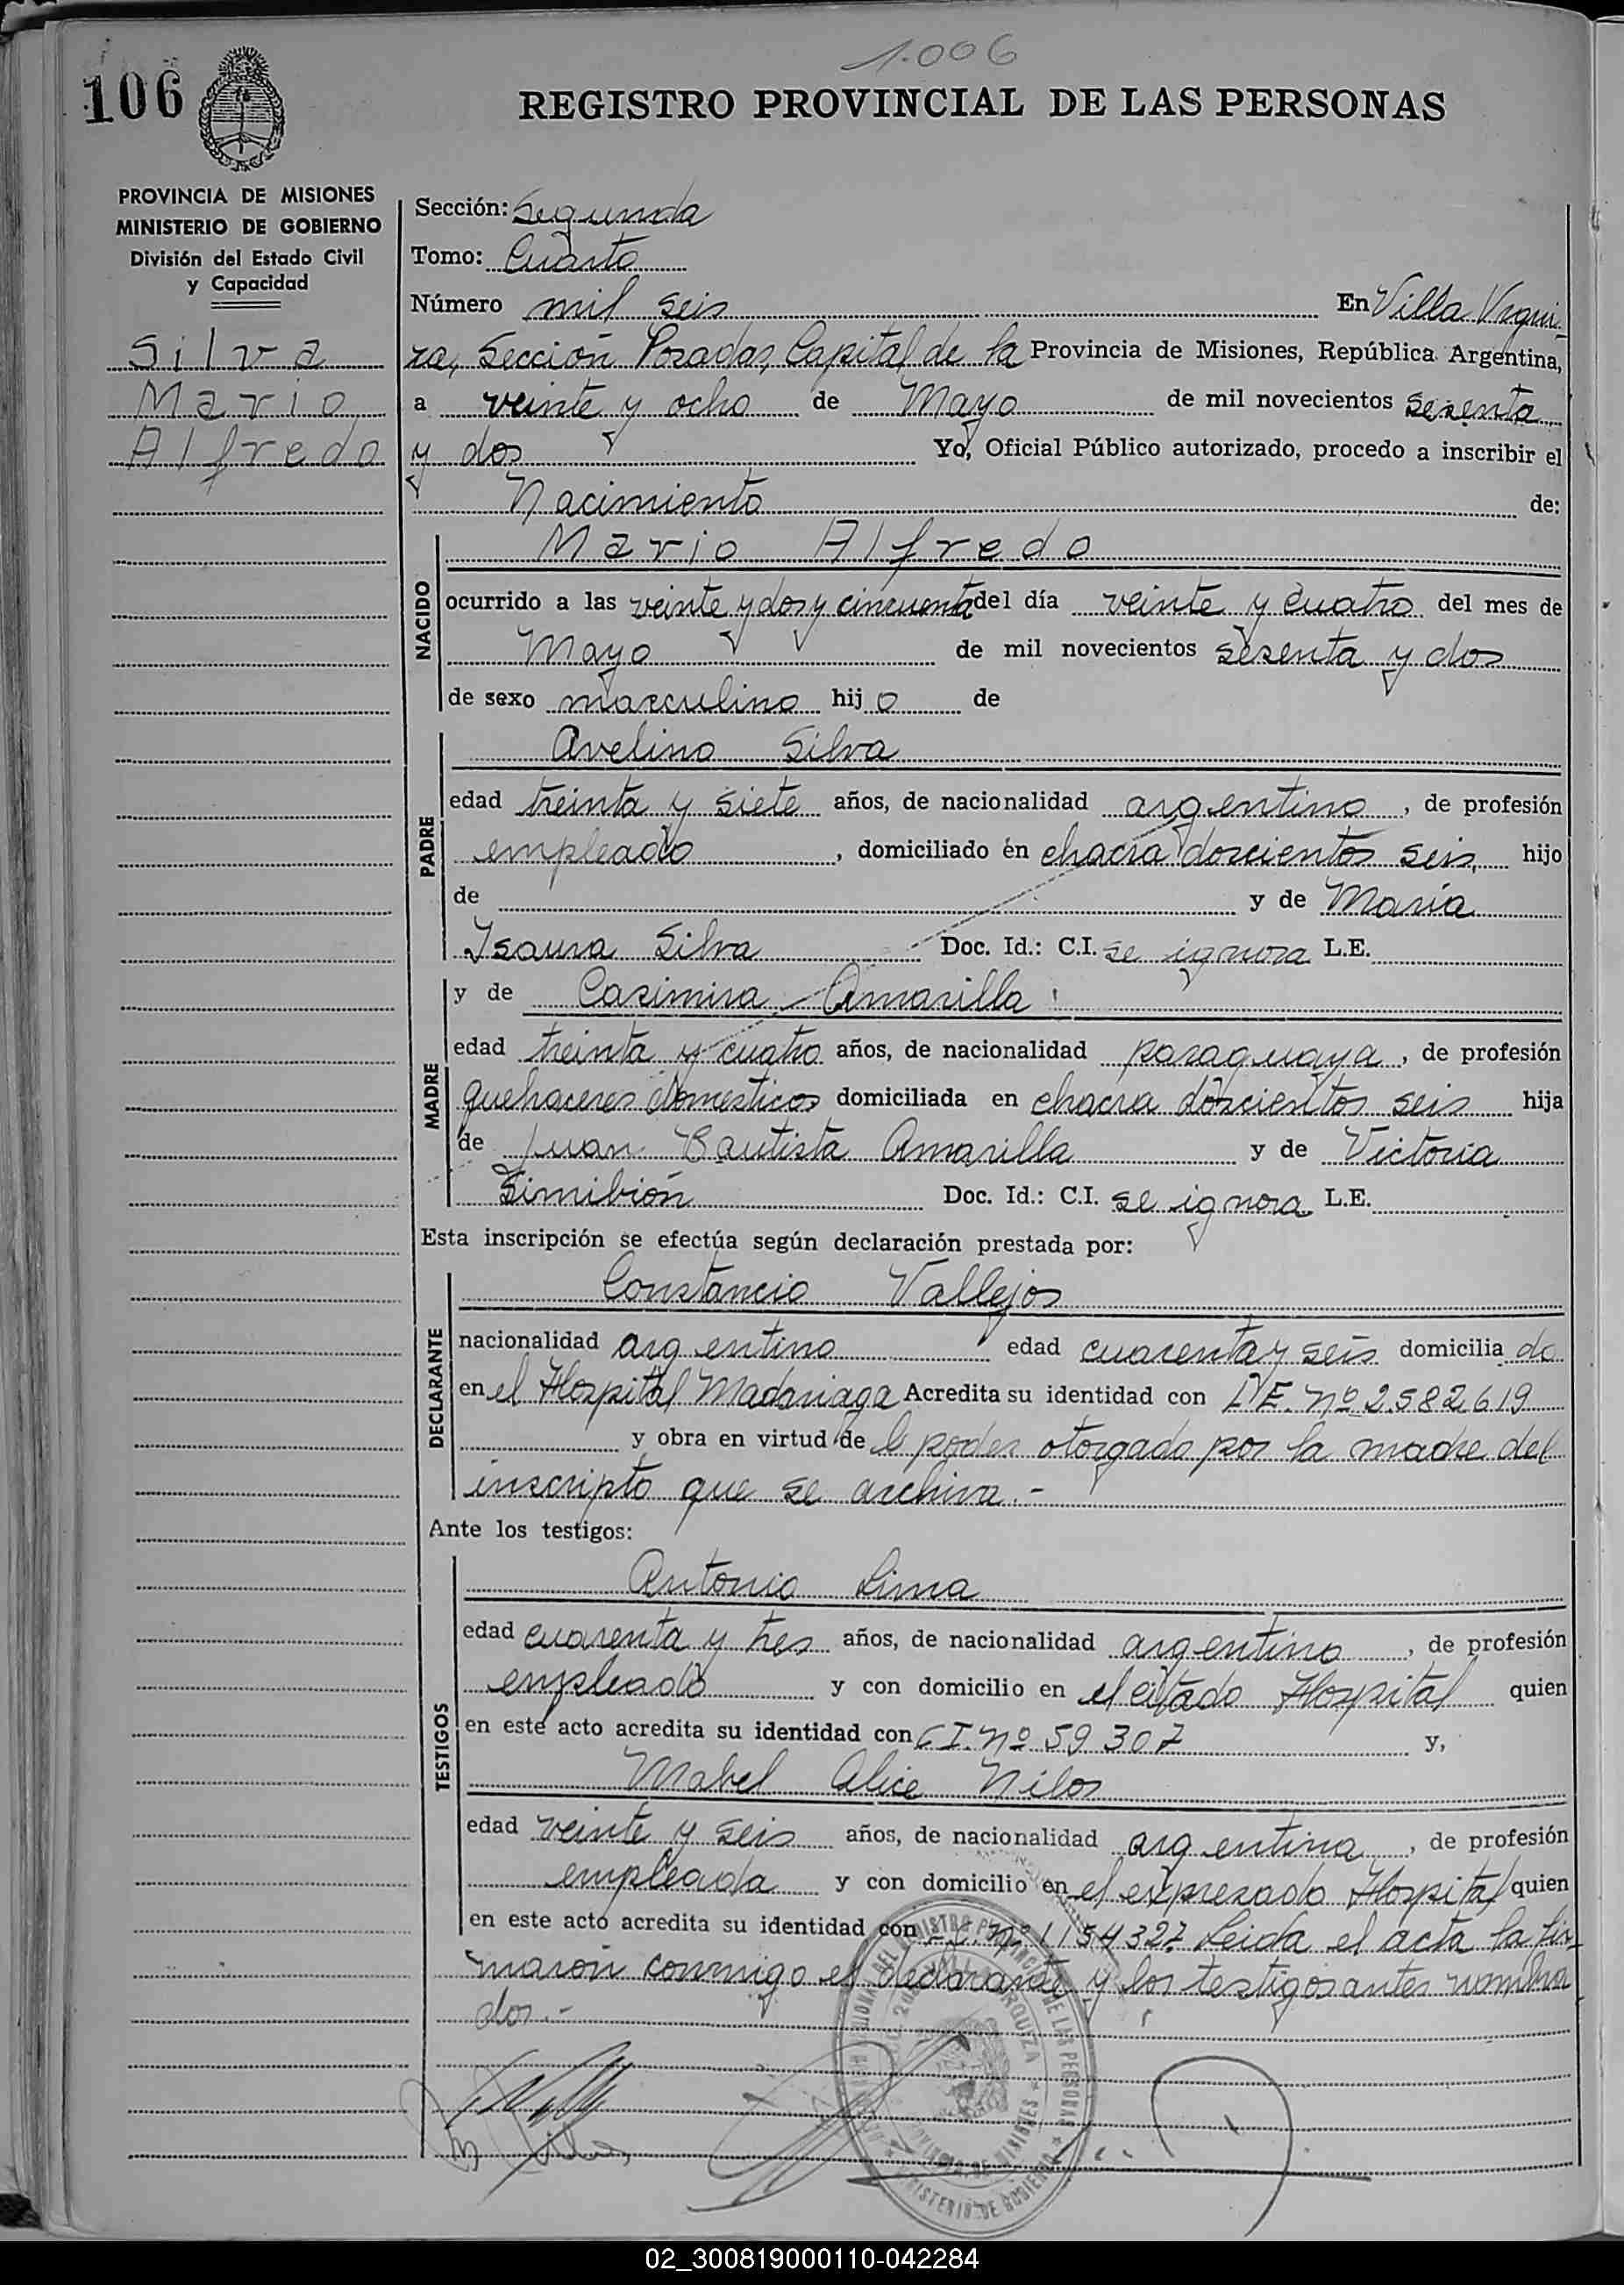 1.006
106
REGISTRO PROVINCIAL DE LAS PERSONAS
PROVINCIA DE MISIONES
MINISTERIO DE GOBIERNO
División del Estado Civil
y Capacidad
Silva
Mario
Alfredo
Sección: Segunda
Tomo: Cuarto
Número mil seis En Villa Urqui-
za, Sección Posadas, Capital de la Provincia de Misiones, República Argentina,
a veinte y ocho de Mayo de mil novecientos sesenta
y dos Yo, Oficial Público autorizado, procedo a inscribir el
Nacimiento de:
NACIDO
Mario Alfredo
ocurrido a las veinte y dos y cincuenta del día veinte y cuatro del mes de
Mayo de mil novecientos sesenta y dos
de sexo masculino hijo de
PADRE
Avelino Silva
edad treinta y siete años, de nacionalidad argentino, de profesión
empleado, domiciliado en chacra doscientos seis hijo
de y de María
Isaura Silva Doc. Id.: C.I. se ignora L.E.
MADRE
y de Casimira Amarilla
edad treinta y cuatro años, de nacionalidad paraguaya, de profesión
quehaceres domesticos domiciliada en chacra doscientos seis hija
de Juan Bautista Amarilla y de Victoria
Simibión Doc. Id.: C.I. se ignora L.E.
Esta inscripción se efectúa según declaración prestada por:
DECLARANTE
Constancio Vallejos
nacionalidad argentino edad cuarenta y seis domiciliado
en el Hospital Madariaga Acredita su identidad con L.E. nº 2.582.619
y obra en virtud de l poder otorgado por la madre del
inscripto que se archiva.-
Ante los testigos:
TESTIGOS
Antonio Lima
edad cuarenta y tres años, de nacionalidad argentino, de profesión
empleado y con domicilio en el citado Hospital quien
en este acto acredita su identidad con C I. nº 59 307 y,
Mabel Alice Nilos
edad veinte y seis años, de nacionalidad argentina, de profesión
empleada y con domicilio en el expresado Hospital quien
en este acto acredita su identidad con nº 1154327. Leida el acta la fir-
maron conmigo el declarante y los testigos antes nombra
dos.-
02_300819000110-042284